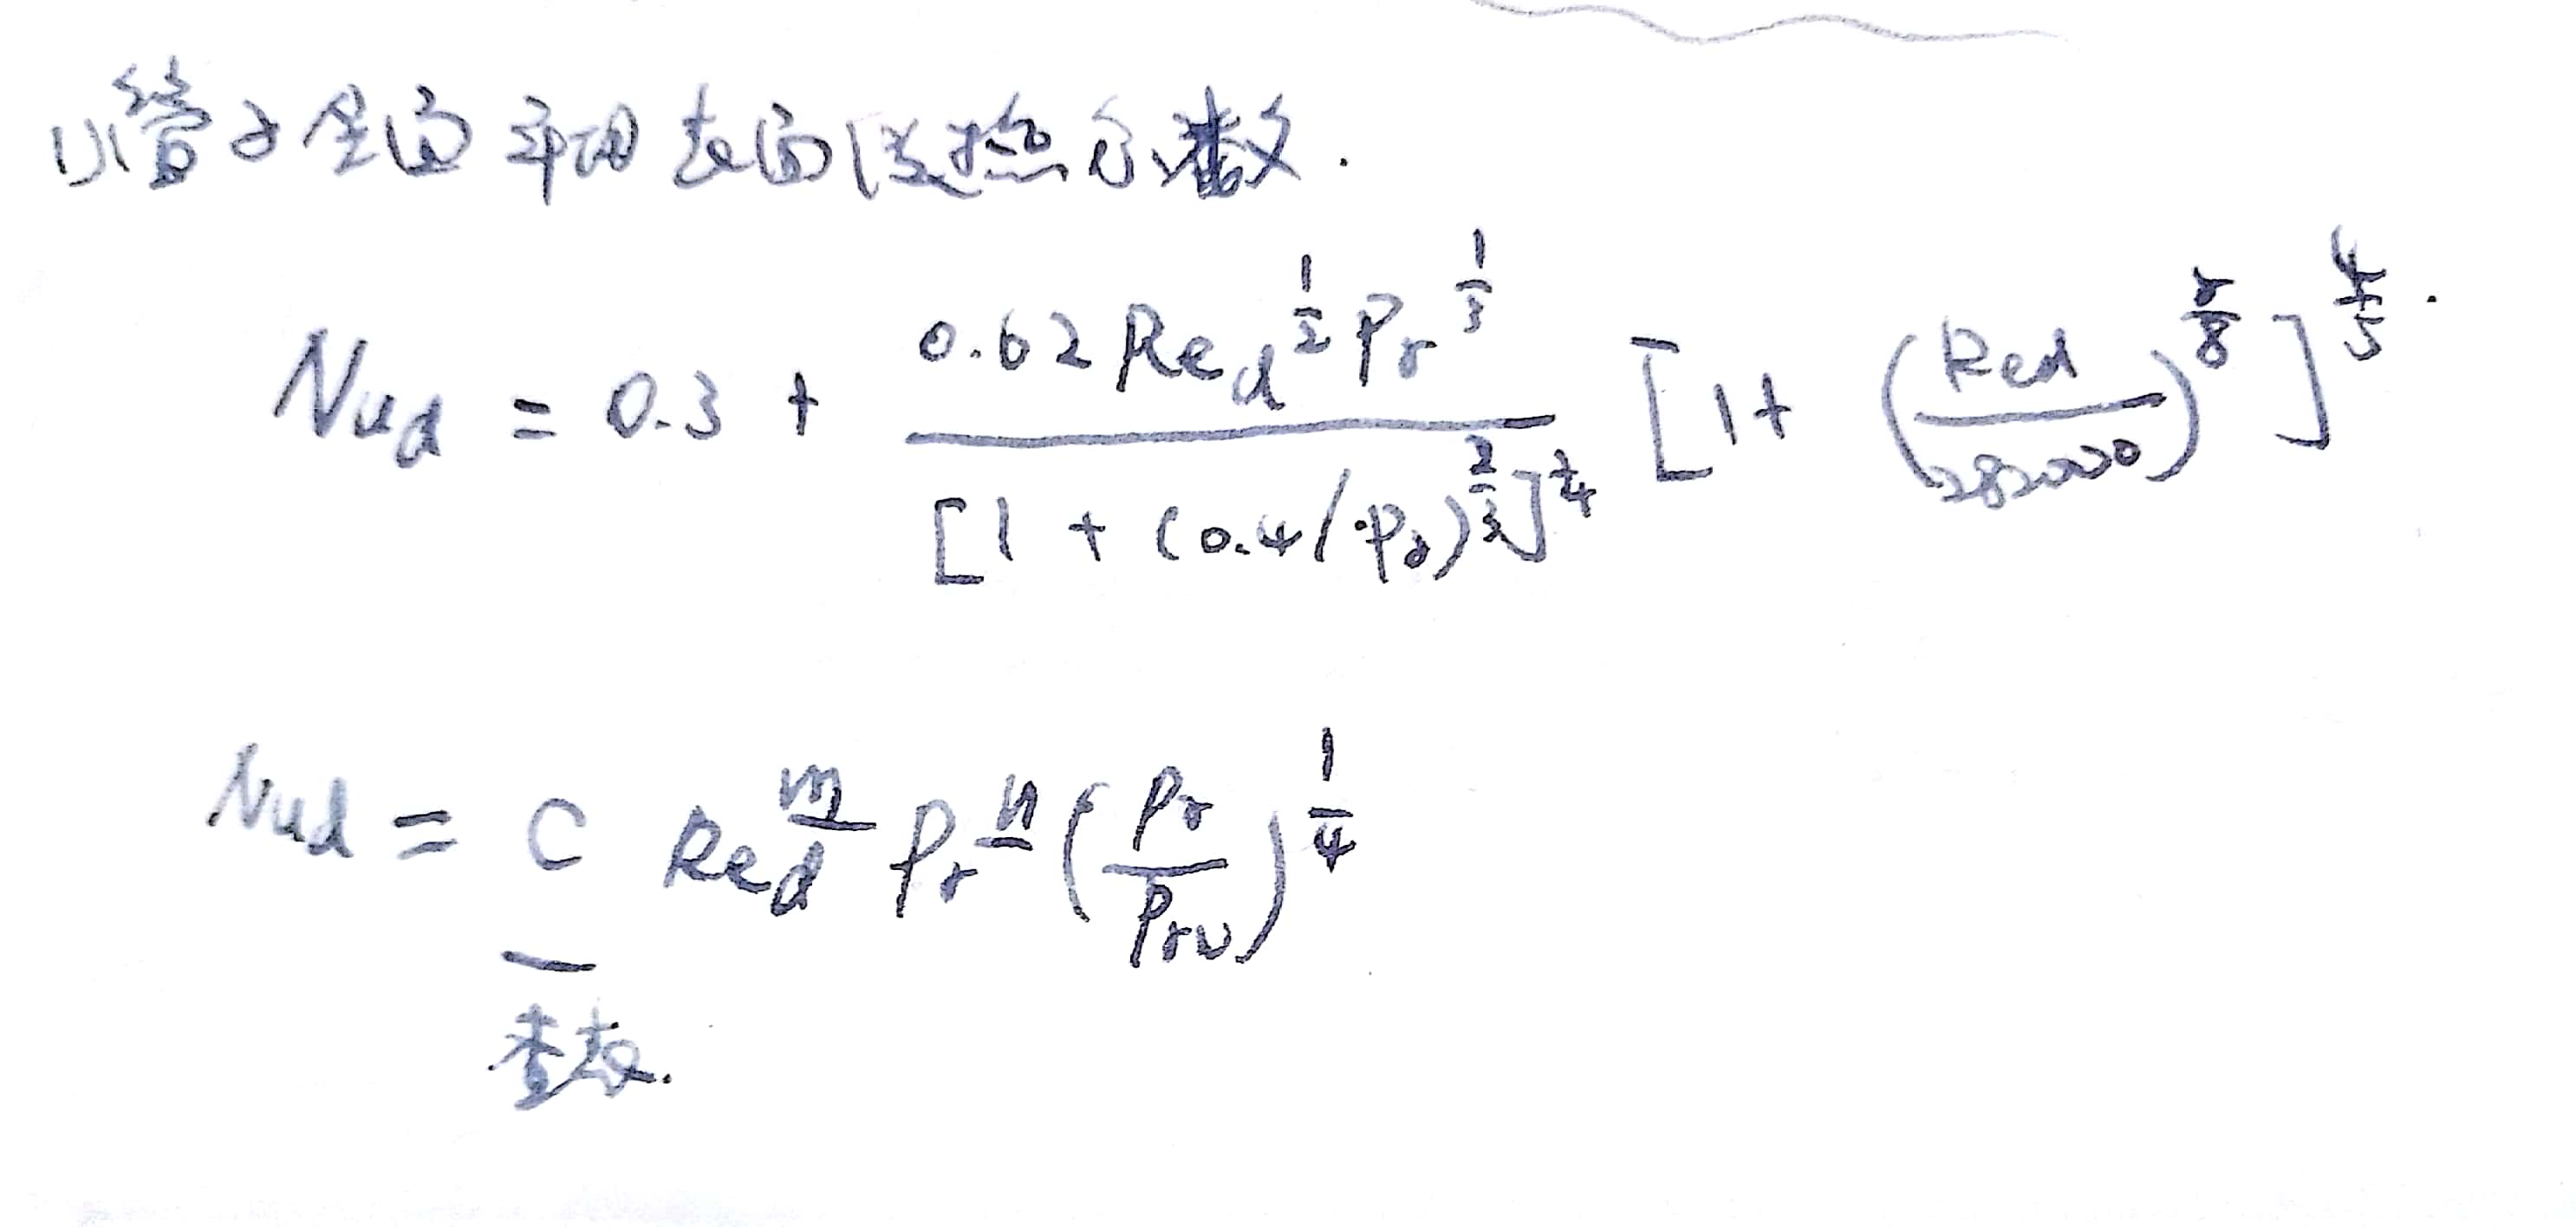 (1) 管子全面平均表面传热系数.
Nud = 0.3 + \frac{0.62 Re_d^{\frac{1}{2}} Pr^{\frac{1}{3}}}{[1 + (0.4/Pr)^{\frac{2}{3}}]^{\frac{1}{4}}} [1 + (\frac{Red}{282000})^{\frac{5}{8}}]^{\frac{4}{5}}.
Nud = C Re_d^m Pr^n (\frac{Pr}{Prw})^{\frac{1}{4}}
查表.